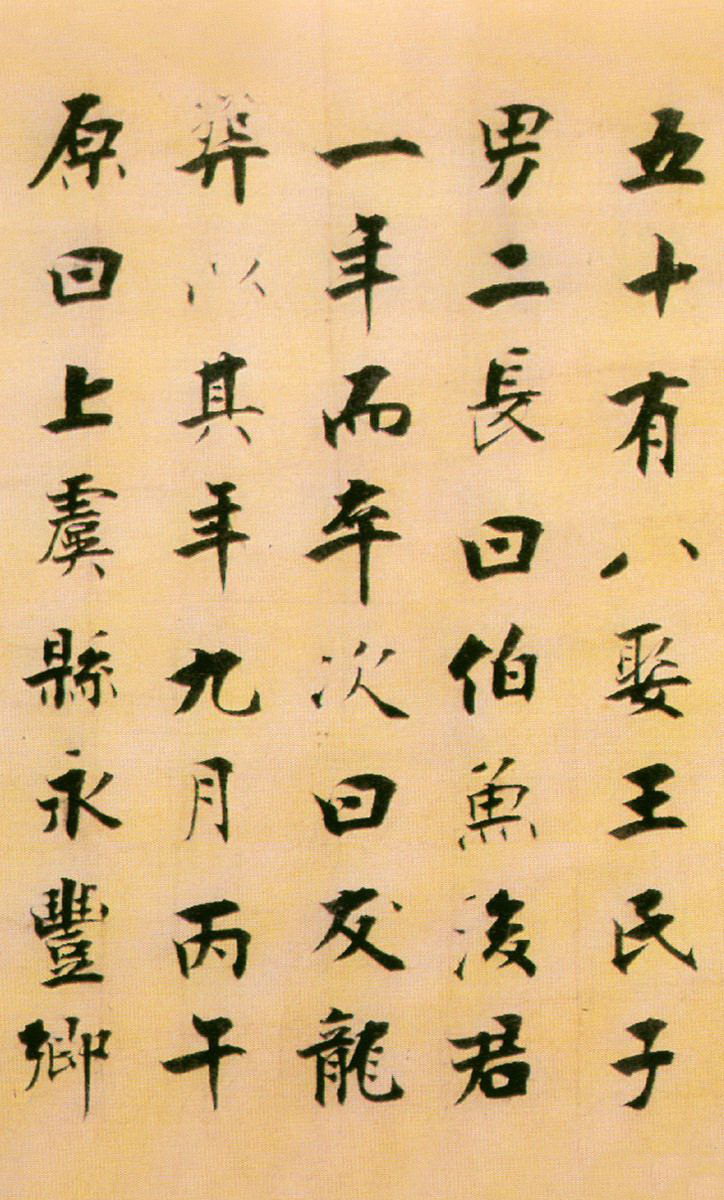 五十有八娶王氏子
男二長曰伯魚後君
一年而卒次曰友龍
葬以其年九月丙午
原曰上虞縣永豐鄉